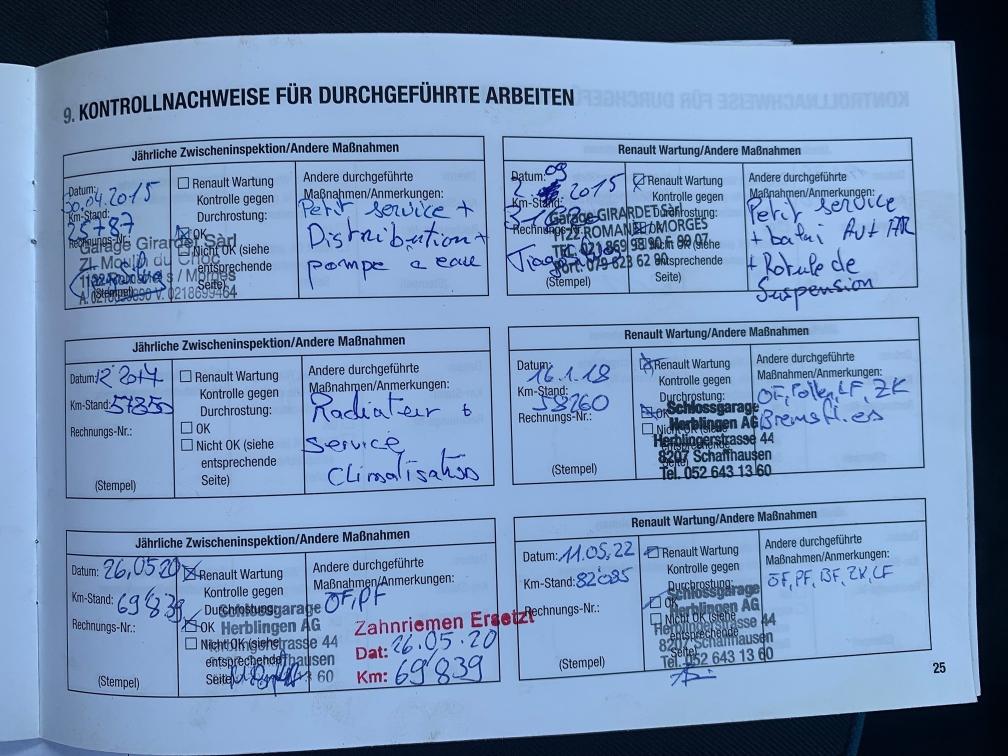 9. KONTROLLNACHWEISE FÜR DURCHGEFÜHRTE ARBEITEN
Jährliche Zwischeninspektion/Andere Maßnahmen
Datum: 30.04.2015
Km-Stand:
25787
Rechnungs-Nr.:
Garage Girardet Sàrl
ZI Moulin du Choc
(Stempel)
Renault Wartung
Kontrolle gegen
Durchrostung:
OK
Nicht OK (siehe
entsprechende
Seite)
Andere durchgeführte
Maßnahmen/Anmerkungen:
Petit service +
Distribution +
pompe a eau
Renault Wartung/Andere Maßnahmen
Datum: 09 2015
Km-Stand:
Rechnungs-Nr.:
Garage GIRARDET Sàrl
1122 ROMANEL s/ MORGES
(Stempel)
Renault Wartung
Kontrolle gegen
Durchrostung:
OK
Nicht OK (siehe
entsprechende
Seite)
Andere durchgeführte
Maßnahmen/Anmerkungen:
Petit service
+ balai AV + AR
+ Rotule de
Suspension
Jährliche Zwischeninspektion/Andere Maßnahmen
Datum: 12 2017
Km-Stand: 57850
Rechnungs-Nr.:
(Stempel)
Renault Wartung
Kontrolle gegen
Durchrostung:
OK
Nicht OK (siehe
entsprechende
Seite)
Andere durchgeführte
Maßnahmen/Anmerkungen:
Radiateur
Service
Climatisation
Renault Wartung/Andere Maßnahmen
Datum: 16.1.18
Km-Stand: 58260
Rechnungs-Nr.:
(Stempel)
Renault Wartung
Kontrolle gegen
Durchrostung:
OK
Nicht OK (siehe
entsprechende
Seite)
Schlossgarage
Herblingen AG
Herblingerstrasse 44
8207 Schaffhausen
Tel. 052 643 13 60
Andere durchgeführte
Maßnahmen/Anmerkungen:
OF, Pollen, LF, ZK
Bremsfl. es
Jährliche Zwischeninspektion/Andere Maßnahmen
Datum: 26.05.20
Km-Stand: 69'839
Rechnungs-Nr.:
(Stempel)
Renault Wartung
Kontrolle gegen
Durchrostung:
OK
Nicht OK (siehe
entsprechende
Seite)
Schlossgarage
Herblingen AG
Herblingerstrasse 44
Andere durchgeführte
Maßnahmen/Anmerkungen:
OF, PF
Zahnriemen Ersetzt
Dat: 26.05.20
Km: 69'839
Renault Wartung/Andere Maßnahmen
Datum: 11.05.22
Km-Stand: 82'085
Rechnungs-Nr.:
(Stempel)
Renault Wartung
Kontrolle gegen
Durchrostung:
OK
Nicht OK (siehe
entsprechende
Seite)
Schlossgarage
Herblingen AG
Herblingerstrasse 44
8207 Schaffhausen
Tel. 052 643 13 60
Andere durchgeführte
Maßnahmen/Anmerkungen:
OF, PF, BF, ZK, LF
25